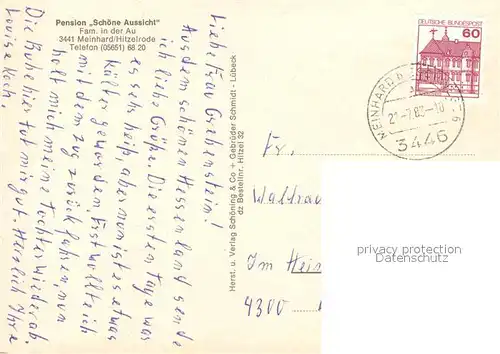 Pension „Schöne Aussicht"
Fam. in der Au
3441 Meinhard/Hitzelrode
Telefon (05651) 68 20
Liebe Frau
Aus dem schönen Hessenland sende
ich liebe Grüße. Die ersten Tage war
es sehr heiß, aber nun ist es etwas
kälter geworden. Erst wollte ich
mit dem Zug zurück fahren, nun
holt mich meine Tochter wieder ab.
Die Ruhe hier tut mir gut. Herzlich Ihre
Louise Koch.
Herst. u. Verlag Schöning & Co + Gebrüder Schmidt - Lübeck
dz Bestellnr. Hitzel 32
DEUTSCHE BUNDESPOST
60
MEINHARD
3446
Fr.
Waltrau
Im Heis
4300
privacy protection
Datenschutz